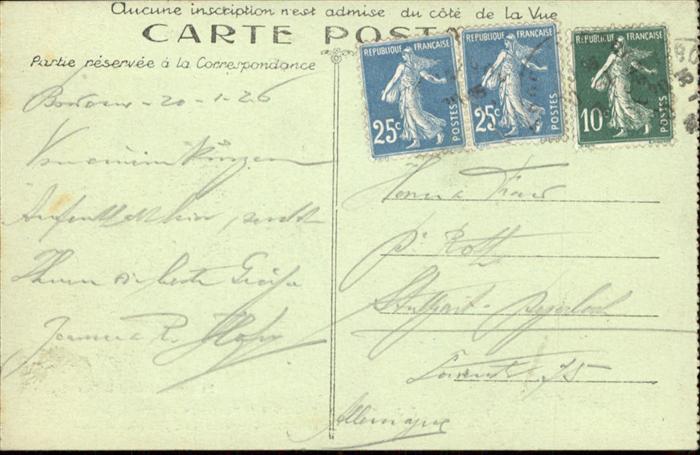 Aucune inscription n'est admise du côté de la Vue
CARTE POST
Partie réservée à la Correspondance
RÉPUBLIQUE FRANÇAISE
25c
POSTES
RÉPUBLIQUE FRANÇAISE
25c
POSTES
RÉPUBLIQUE FRANÇAISE
10c
POSTES
Bordeaux - 20-1-26
Von einem kurzen
Aufenthalt hier, sendet
Ihnen die beste Grüße
Herrn &
Roth
Stuttgart - Degerloch
75
Allemagne